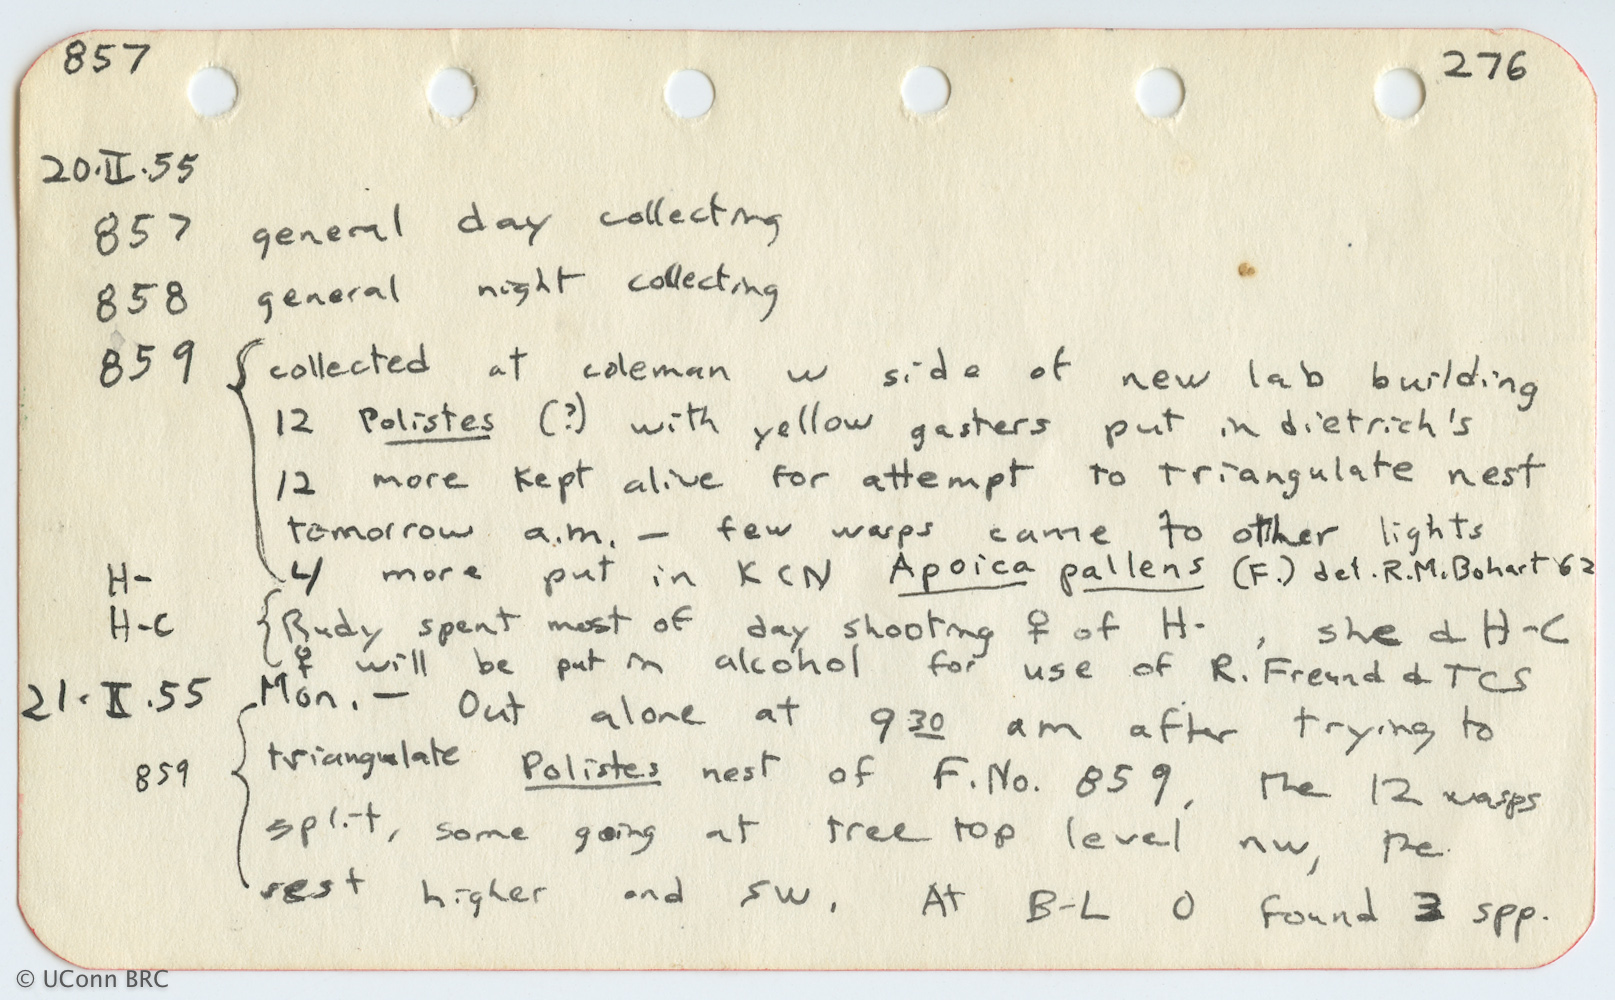 857 276
20.II.55
857 general day collecting
858 general night collecting
859 collected at coleman w side of new lab building
12 Polistes (?) with yellow gasters put in dietrich's
12 more kept alive for attempt to triangulate nest
tomorrow a.m. — few wasps came to other lights
4 more put in KCN Apoica pallens (F.) det. R.M. Bohart 62
H-
H-C Rudy spent most of day shooting ♀ of H- , she & H-C
♀ will be put in alcohol for use of R. Freund & TCS
21.II.55 Mon. — Out alone at 930 am after trying to
859 triangulate Polistes nest of F.No. 859, the 12 wasps
split, some going at tree top level nw, the
rest higher and sw. At B-L O found 3 spp.
© UConn BRC